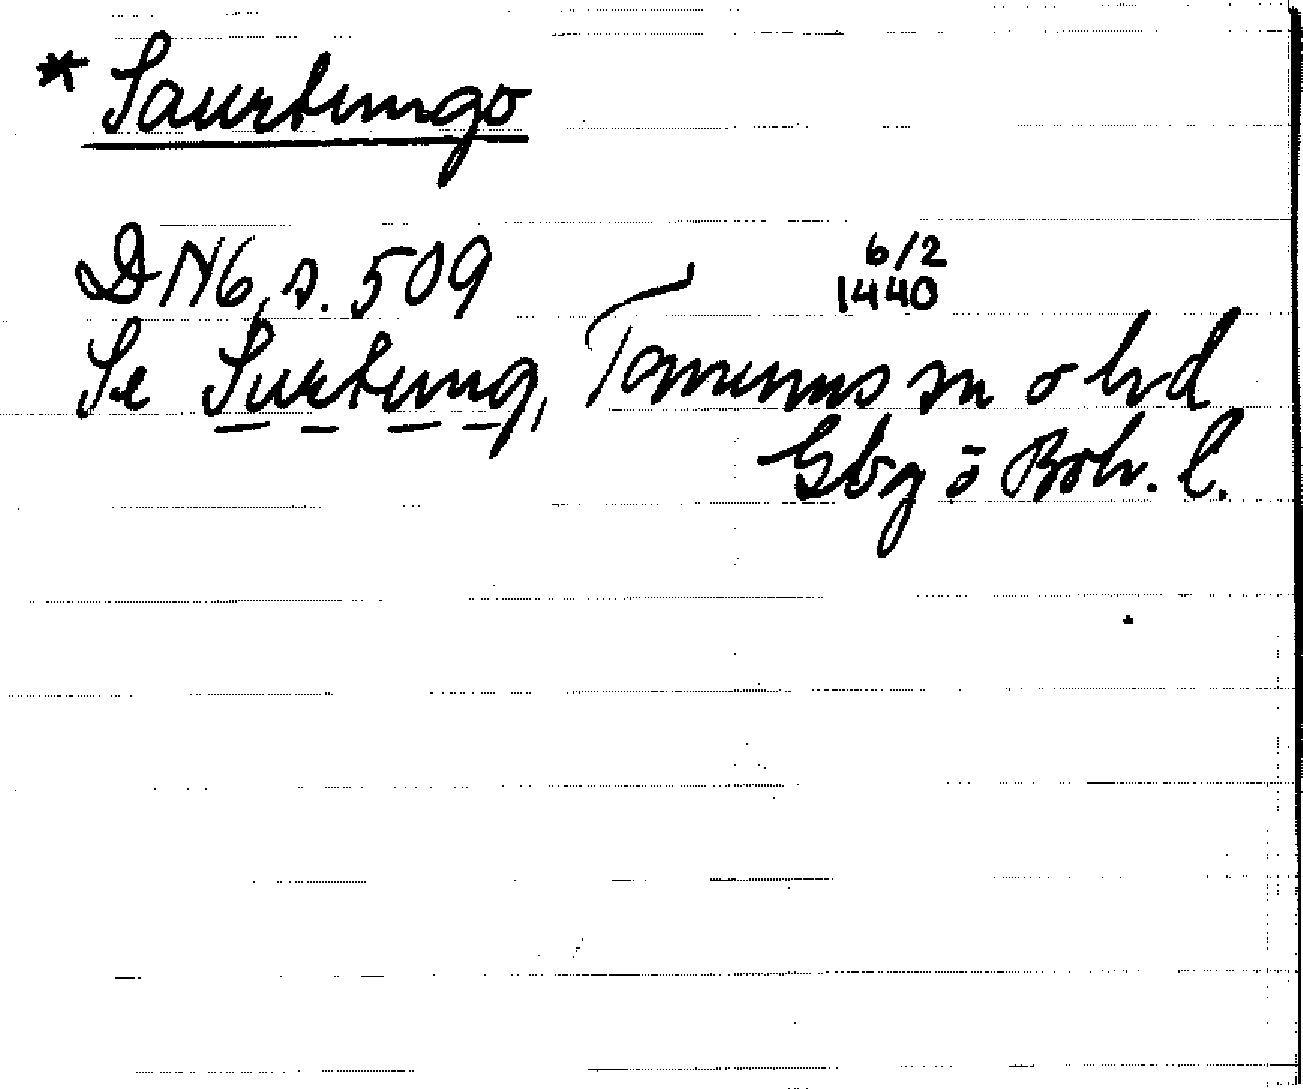 * Saurtungo
DN6, s. 509 6/2 1440
Se Surtung, Tanums sn o hd
Gbg o Boh. l.